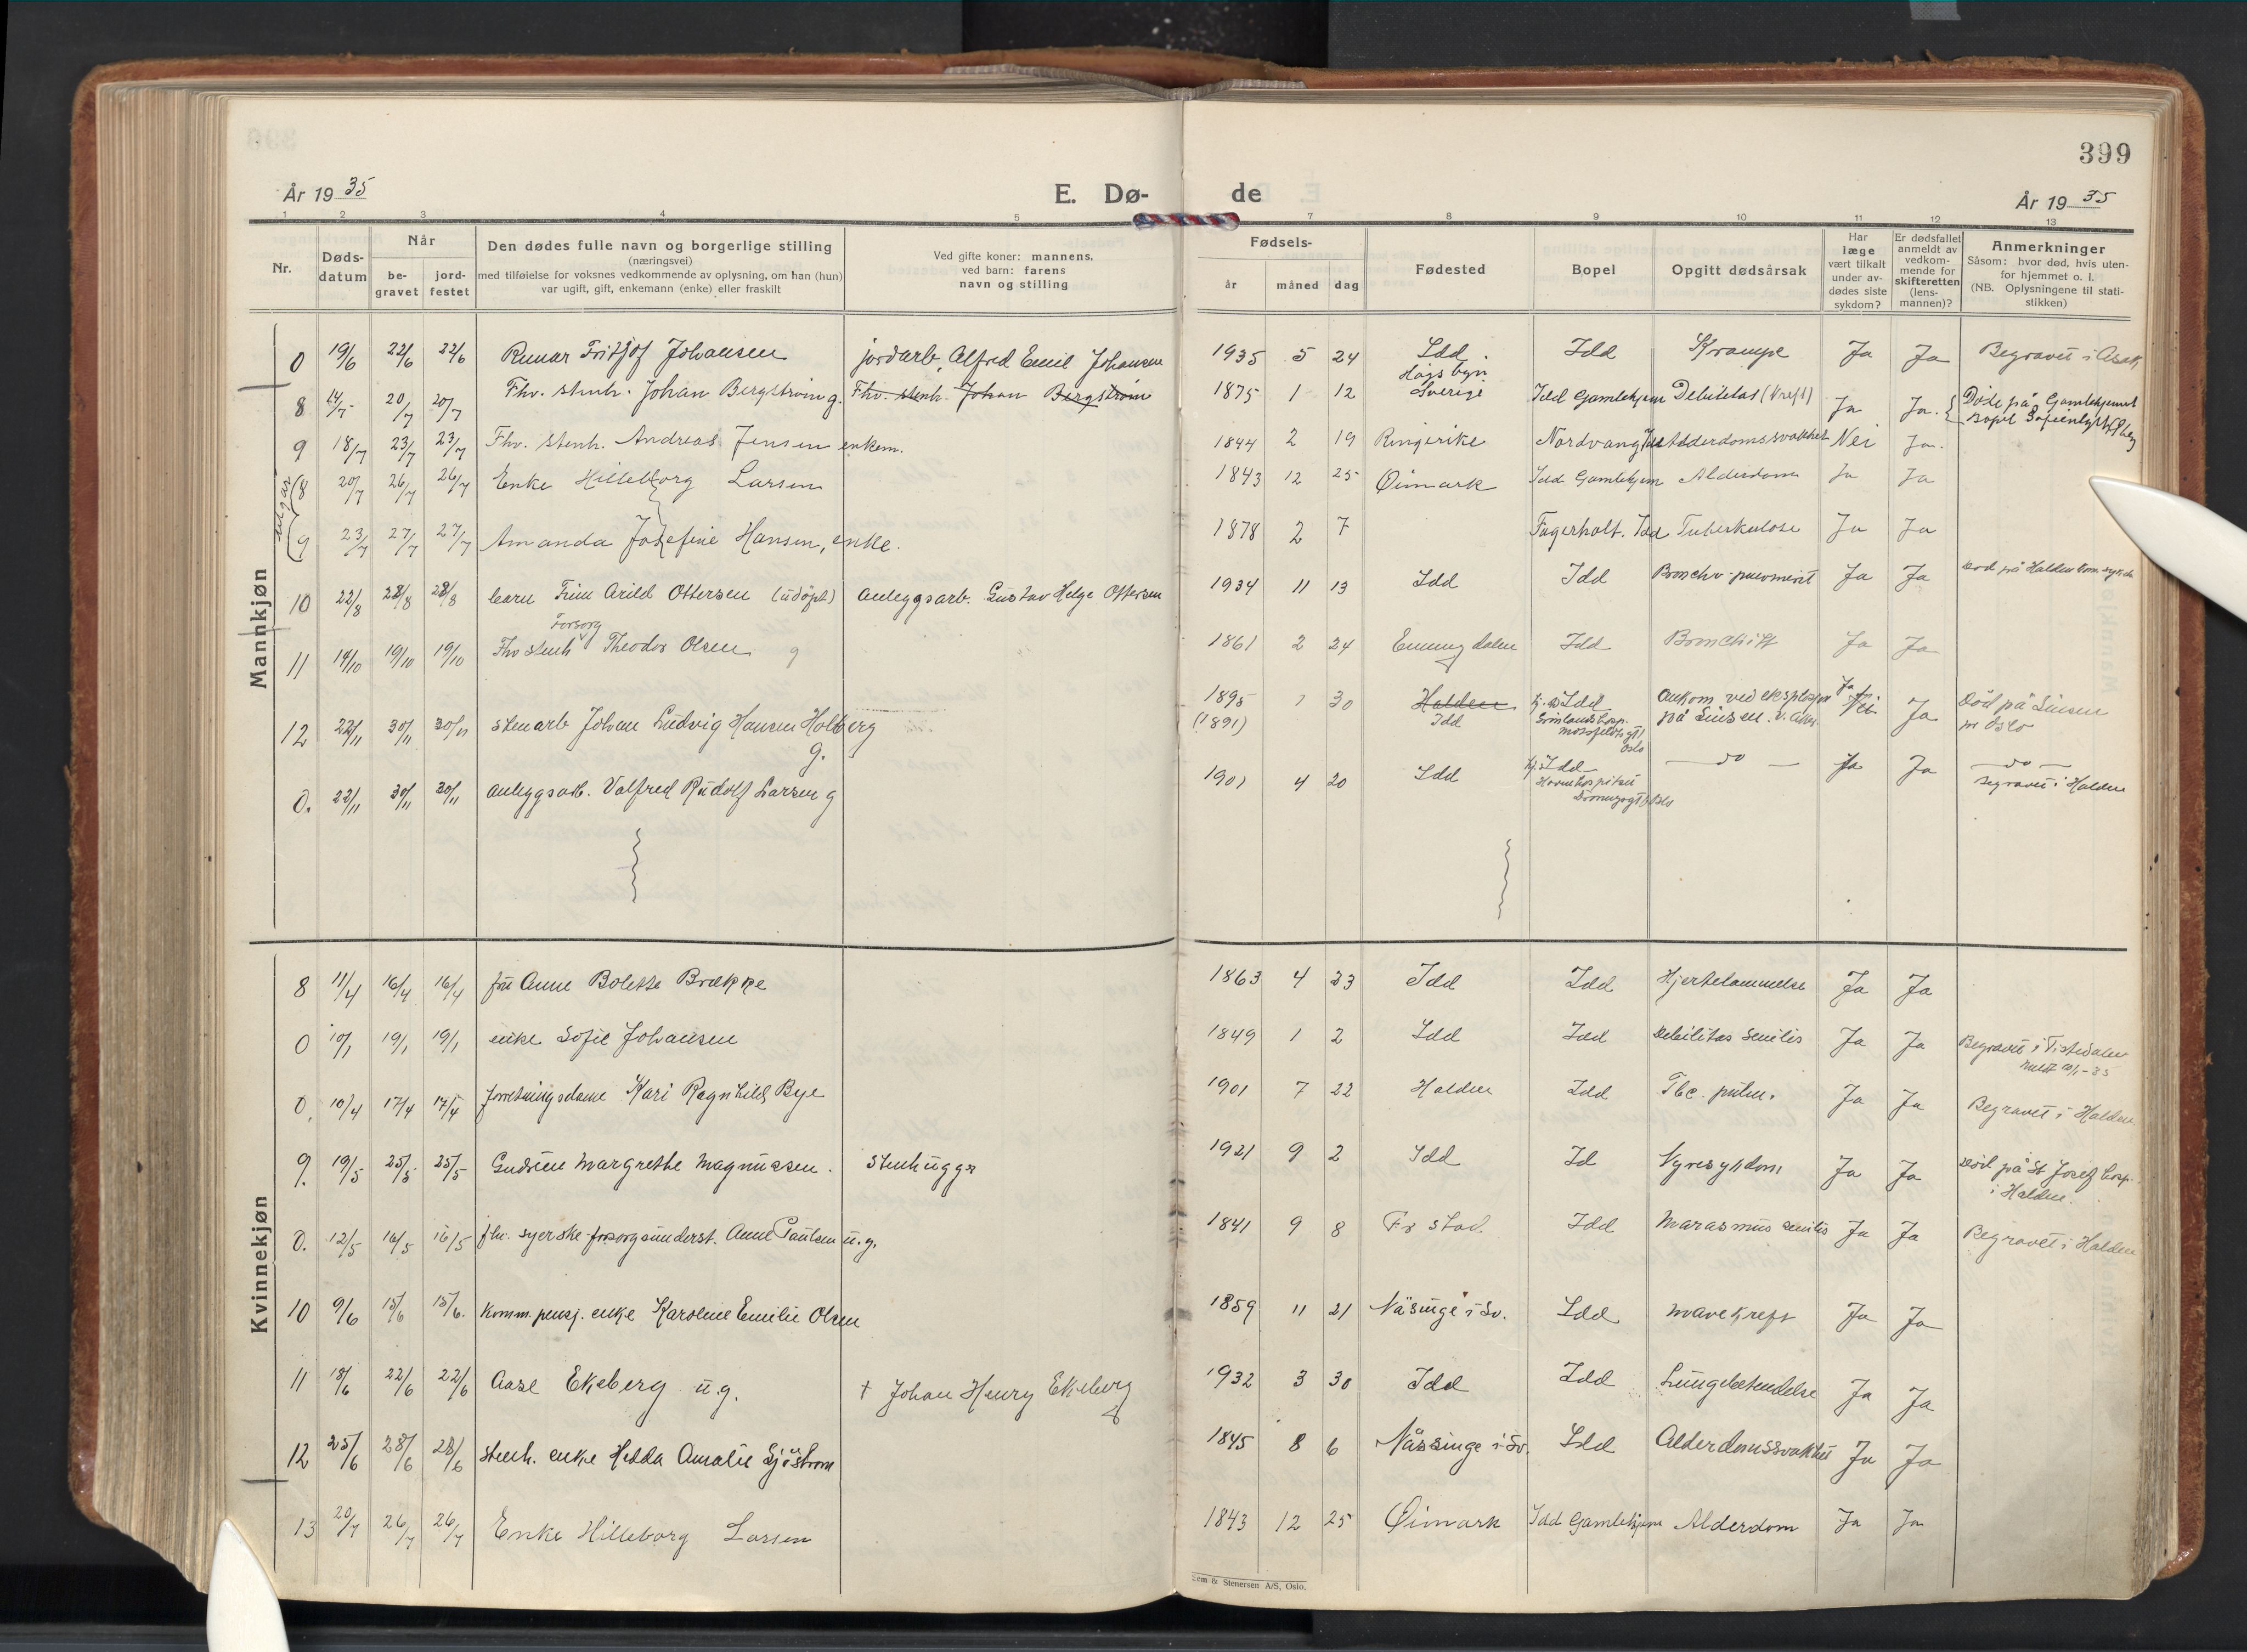 399
År 1935
E. Dø-
de
År 1935
1 2 3 4 5 7 8 9 10 11 12 13
Nr.
Døds-
datum
Når
be-
gravet
jord-
festet
Den dødes fulle navn og borgerlige stilling
(næringsvei)
med tilføielse for voksnes vedkommende av oplysning, om han (hun)
var ugift, gift, enkemann (enke) eller fraskilt
Ved gifte koner: mannens,
ved barn: farens
navn og stilling
Fødsels-
år måned dag
Fødested
Bopel
Opgitt dødsårsak
Har
læge
vært tilkalt
under av-
dødes siste
sykdom?
Er dødsfallet
anmeldt av
vedkom-
mende for
skifteretten
(lens-
mannen)?
Anmerkninger
Såsom: hvor død, hvis uten-
for hjemmet o. l.
(NB. Oplysningene til stati-
stikken)
Mannkjøn
0 19/6 22/6 22/6 Runar Fritjof Johansen jordarb. Alfred Emil Johansen 1935 5 24 Idd Idd Krampe Ja Ja Begravet i Asak
8 14/7 20/7 20/7 Fhv. stenh. Johan Bergstrøm g. Fhv. stenh. Johan Bergstrøm 1875 1 12 Sverige Idd Gamlehjem Debilitas (Kreft) Ja Ja. Døde på Gamlehjemmet
Bopel
9 18/7 23/7 23/7 Fhv. stenh. Andreas Jensen enkem. 1844 2 19 Ringerike Nordvang Idd Alderdomssvakhet Nei Ja.
8 20/7 26/7 26/7 Enke Hilleborg Larsen 1843 12 25 Øimark Idd Gamlehjem Alderdom Ja Ja
utgår
9 23/7 27/7 27/7 Amanda Josefine Hansen, enke. 1878 2 7 Fagerholt. Idd Tuberkulose Ja Ja
10 22/8 28/8 28/8 barn Finn Arild Ottersen (udøpt) anleggsarb. Gustav Helge Ottersen 1934 11 13 Idd Idd Broncho-pneumoni Ja Ja død på Halden kom. sykeh.
Forsorg
11 14/10 19/10 19/10 Fhv stenh Theodor Olsen g 1861 2 24 Enningdalen Idd Bronchitt Ja Ja
12 22/11 30/11 30/11 stenarb Johan Ludvig Hansen Holberg g. 1895 1 30 Halden Idd Ankom ved eksplosjon Ja Nei Ja Død på Sinsen
(1891) Idd på Sinsen v. Aker pr Oslo
0. 22/11 30/11 30/11 anleggsarb. Valfred Rudolf Larsen g 1901 4 20 Idd Idd do Ja Ja do
Begravet i Halden
Kvinnekjøn
8 11/4 16/4 16/4 fru Anne Bolette Brække 1863 4 23 Idd Idd Hjertelammelse Ja Ja
0 10/1 19/1 19/1 enke Sofie Johansen 1849 1 2 Idd Idd Debilitas senilis Ja Ja Begravet i Tistedalen
0. 10/4 17/4 17/4 forretningsdame Kari Ragnhild Bye 1901 7 22 Halden Idd Tbc. pulm. Ja Ja Begravet i Halden
9. 19/5 25/5 25/5 Gudrun Margrethe Magnussen. Stenhugger 1921 9 2 Idd Id Nyresygdom Ja Ja død på St Josef hosp.
i Halden.
0. 12/5 16/5 16/5 fhv. syerske forsorgsunderst. Anne Paulsen u.g. 1841 9 8 Fr stad. Idd Marasmus senilis Ja Ja Begravet i Halden
10 9/6 15/6 15/6. Komm. pensj. enke Karoline Emilie Olsen 1859 11 21 Näsinge i Sv. Idd mavekreft Ja Ja
11 18/6 22/6 22/6 Aase Ekeberg u.g. † Johan Henry Ekeberg 1932 3 30 Idd Idd Lungebetendelse Ja Ja
12 25/6 28/6 28/6 stenh. enke Hedda Amalie Sjöstrøm 1845 8 6 Nässinge i Sv. Idd Alderdomssvakhet Ja Ja
13 20/7 26/7 26/7 Enke Hilleborg Larsen 1843 12 25 Øimark Idd Gamlehjem Alderdom Ja Ja
Sem & Stenersen A/S, Oslo.